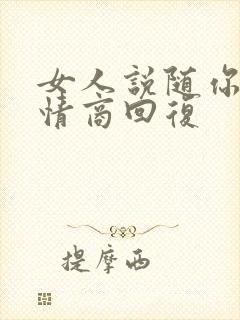 女人説随你
情商回復
提摩西